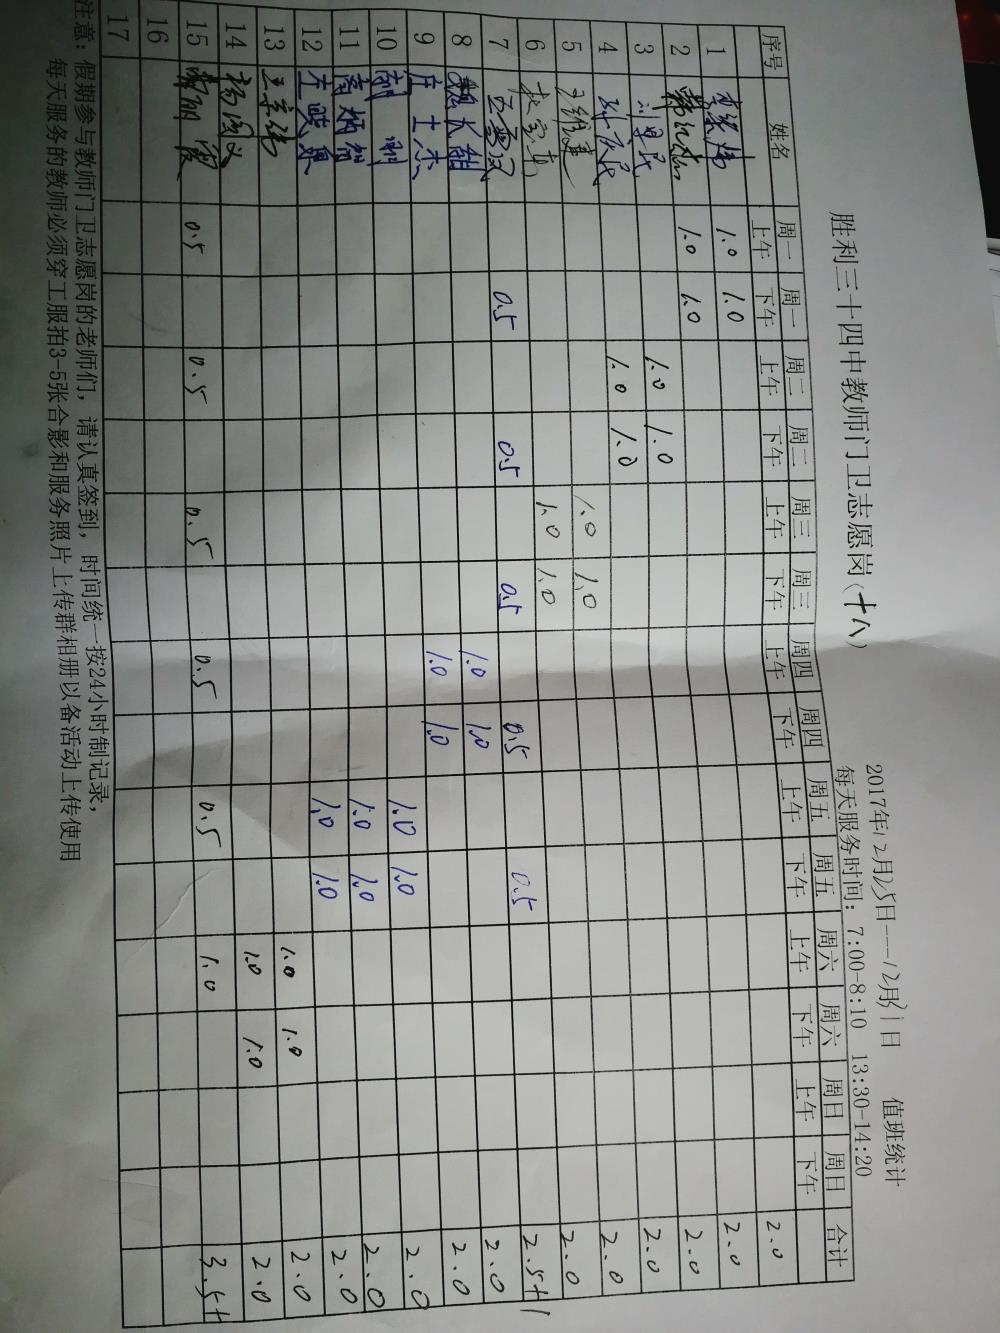 胜利三十四中教师门卫志愿岗(十八)
2017年12月25日---12月31日 值班统计
每天服务时间：7:00-8:10 13:30-14:20
序号 姓名 周一上午 周一下午 周二上午 周二下午 周三上午 周三下午 周四上午 周四下午 周五上午 周五下午 周六上午 周六下午 周日上午 周日下午 合计
2.0
1 1.0 1.0 2.0
2 1.0 1.0 2.0
3 1.0 1.0 2.0
4 1.0 1.0 2.0
5 1.0 1.0 2.0
6 1.0 1.0 2.5+1
7 0.5 0.5 0.5 0.5 0.5 2.0
8 1.0 1.0 2.0
9 庄士杰 1.0 1.0 2.0
10 1.0 1.0 2.0
11 1.0 1.0 2.0
12 1.0 1.0 2.0
13 1.0 1.0 2.0
14 1.0 1.0 2.0
15 0.5 0.5 0.5 0.5 0.5 1.0 3.5+
16
17
注意：假期参与教师门卫志愿岗的老师们，请认真签到，时间统一按24小时制记录，
每天服务的教师必须穿工服拍3-5张合影和服务照片上传群相册以备活动上传使用